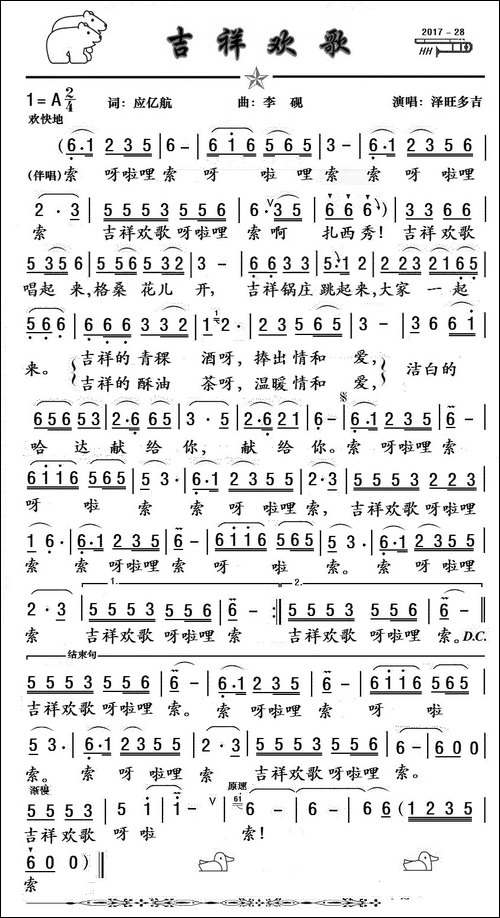 吉祥欢歌
2017 - 28
1=A 2/4 词：应亿航 曲：李砚 演唱：泽旺多吉
欢快地
(6·1 2 3 5 | 6 - | 6 i 6 5 6 5 | 3 - | 6·1 2 3 5 |
(伴唱)索 呀啦哩 索 呀 啦 哩 索 索 呀 啦哩
2·3 | 5 5 5 3 5 5 6 | 6·3 5 | 6 6 6) | 3 3 6 6 |
索 吉祥欢歌 呀啦哩 索啊 扎西秀！ 吉祥 欢歌
5 3 5 6 | 5 3 5 6 3 2 | 3 - | 6 6 3 3 | 5·1 2 | 2 2 3 2 1 6 5 |
唱起 来,格桑 花儿 开, 吉祥锅庄 跳起来,大家 一 起
5 6 6 | 6 6 6 3 3 2 | 1 2· | 2 3 5 6 5 | 3 - | 3 6 6 1 |
来。 吉祥的 青稞 酒呀, 捧出 情和 爱, 洁白的
吉祥的 酥油 茶呀, 温暖 情和 爱,
6 5 6 5 3 | 2·6 6 5 | 3·5 | 2·6 2 1 | 6 - | 6·1 2 3 5 | 6 - |
哈 达 献 给 你, 献 给 你。索 呀啦哩 索
6 i i 6 5 6 5 | 5 3· | 6·1 2 3 5 | 5 5 5 3 2 2 3 |
呀 啦 索 索 呀啦 哩 索, 吉祥欢歌 呀啦哩
1 6· | 6·1 2 3 5 | 6 - | 6 i i 6 5 6 5 | 5 3· | 6·1 2 3 5 |
索 索 呀啦哩 索 呀 啦 索。 索 呀啦 哩
1. 2.
2·3 | 5 5 5 3 5 5 5 | 6 - :| 5 5 5 3 5 5 5 | 6 - ||
索 吉祥欢歌 呀啦哩 索 吉祥欢歌 呀啦哩 索。D.C.
结束句
5 5 5 3 5 5 5 | 6 - | 6·1 2 3 5 | 6 - | 6 i i 6 5 6 5 |
吉祥欢歌 呀啦哩 索。 索 呀啦哩 索 呀 啦
5 3· | 6·1 2 3 5 5 | 2·3 | 5 5 5 3 5 5 5 | 6 - | 6 0 0 |
索。 索 呀 啦哩 索 吉祥欢歌 呀啦哩 索。
渐慢 原速
5 5 5 3 | 5 i | i - ∨ | 6 - | 6 - | 6 6 (1 2 3 5 |
吉祥欢歌 呀 啦 索！
6 0 0) ||
索